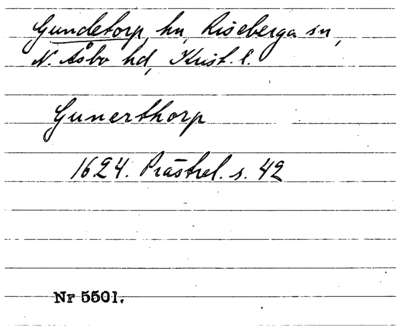 Gundetorp, hn, Riseberga sn,
N. Åsbo hd, Krist. l.
Gunerthorp
1624. Prästrel. s. 42
Nr 5501.